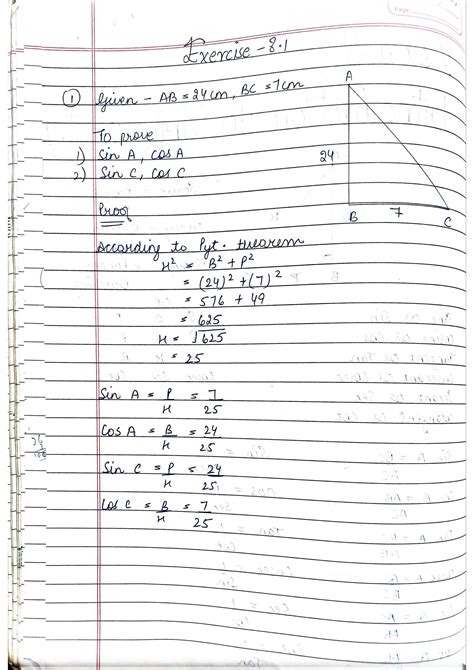 Exercise - 8.1
① Given - AB = 24cm, BC = 7cm
A
To prove
1) Sin A, Cos A
24
2) Sin C, Cos C
Proof
B 7 C
According to Pyt. theorem
H² = B² + P²
= (24)² + (7)²
= 576 + 49
= 625
H = √625
= 25
Sin A = P/H = 7/25
Cos A = B/H = 24/25
Sin C = P/H = 24/25
Cos C = B/H = 7/25